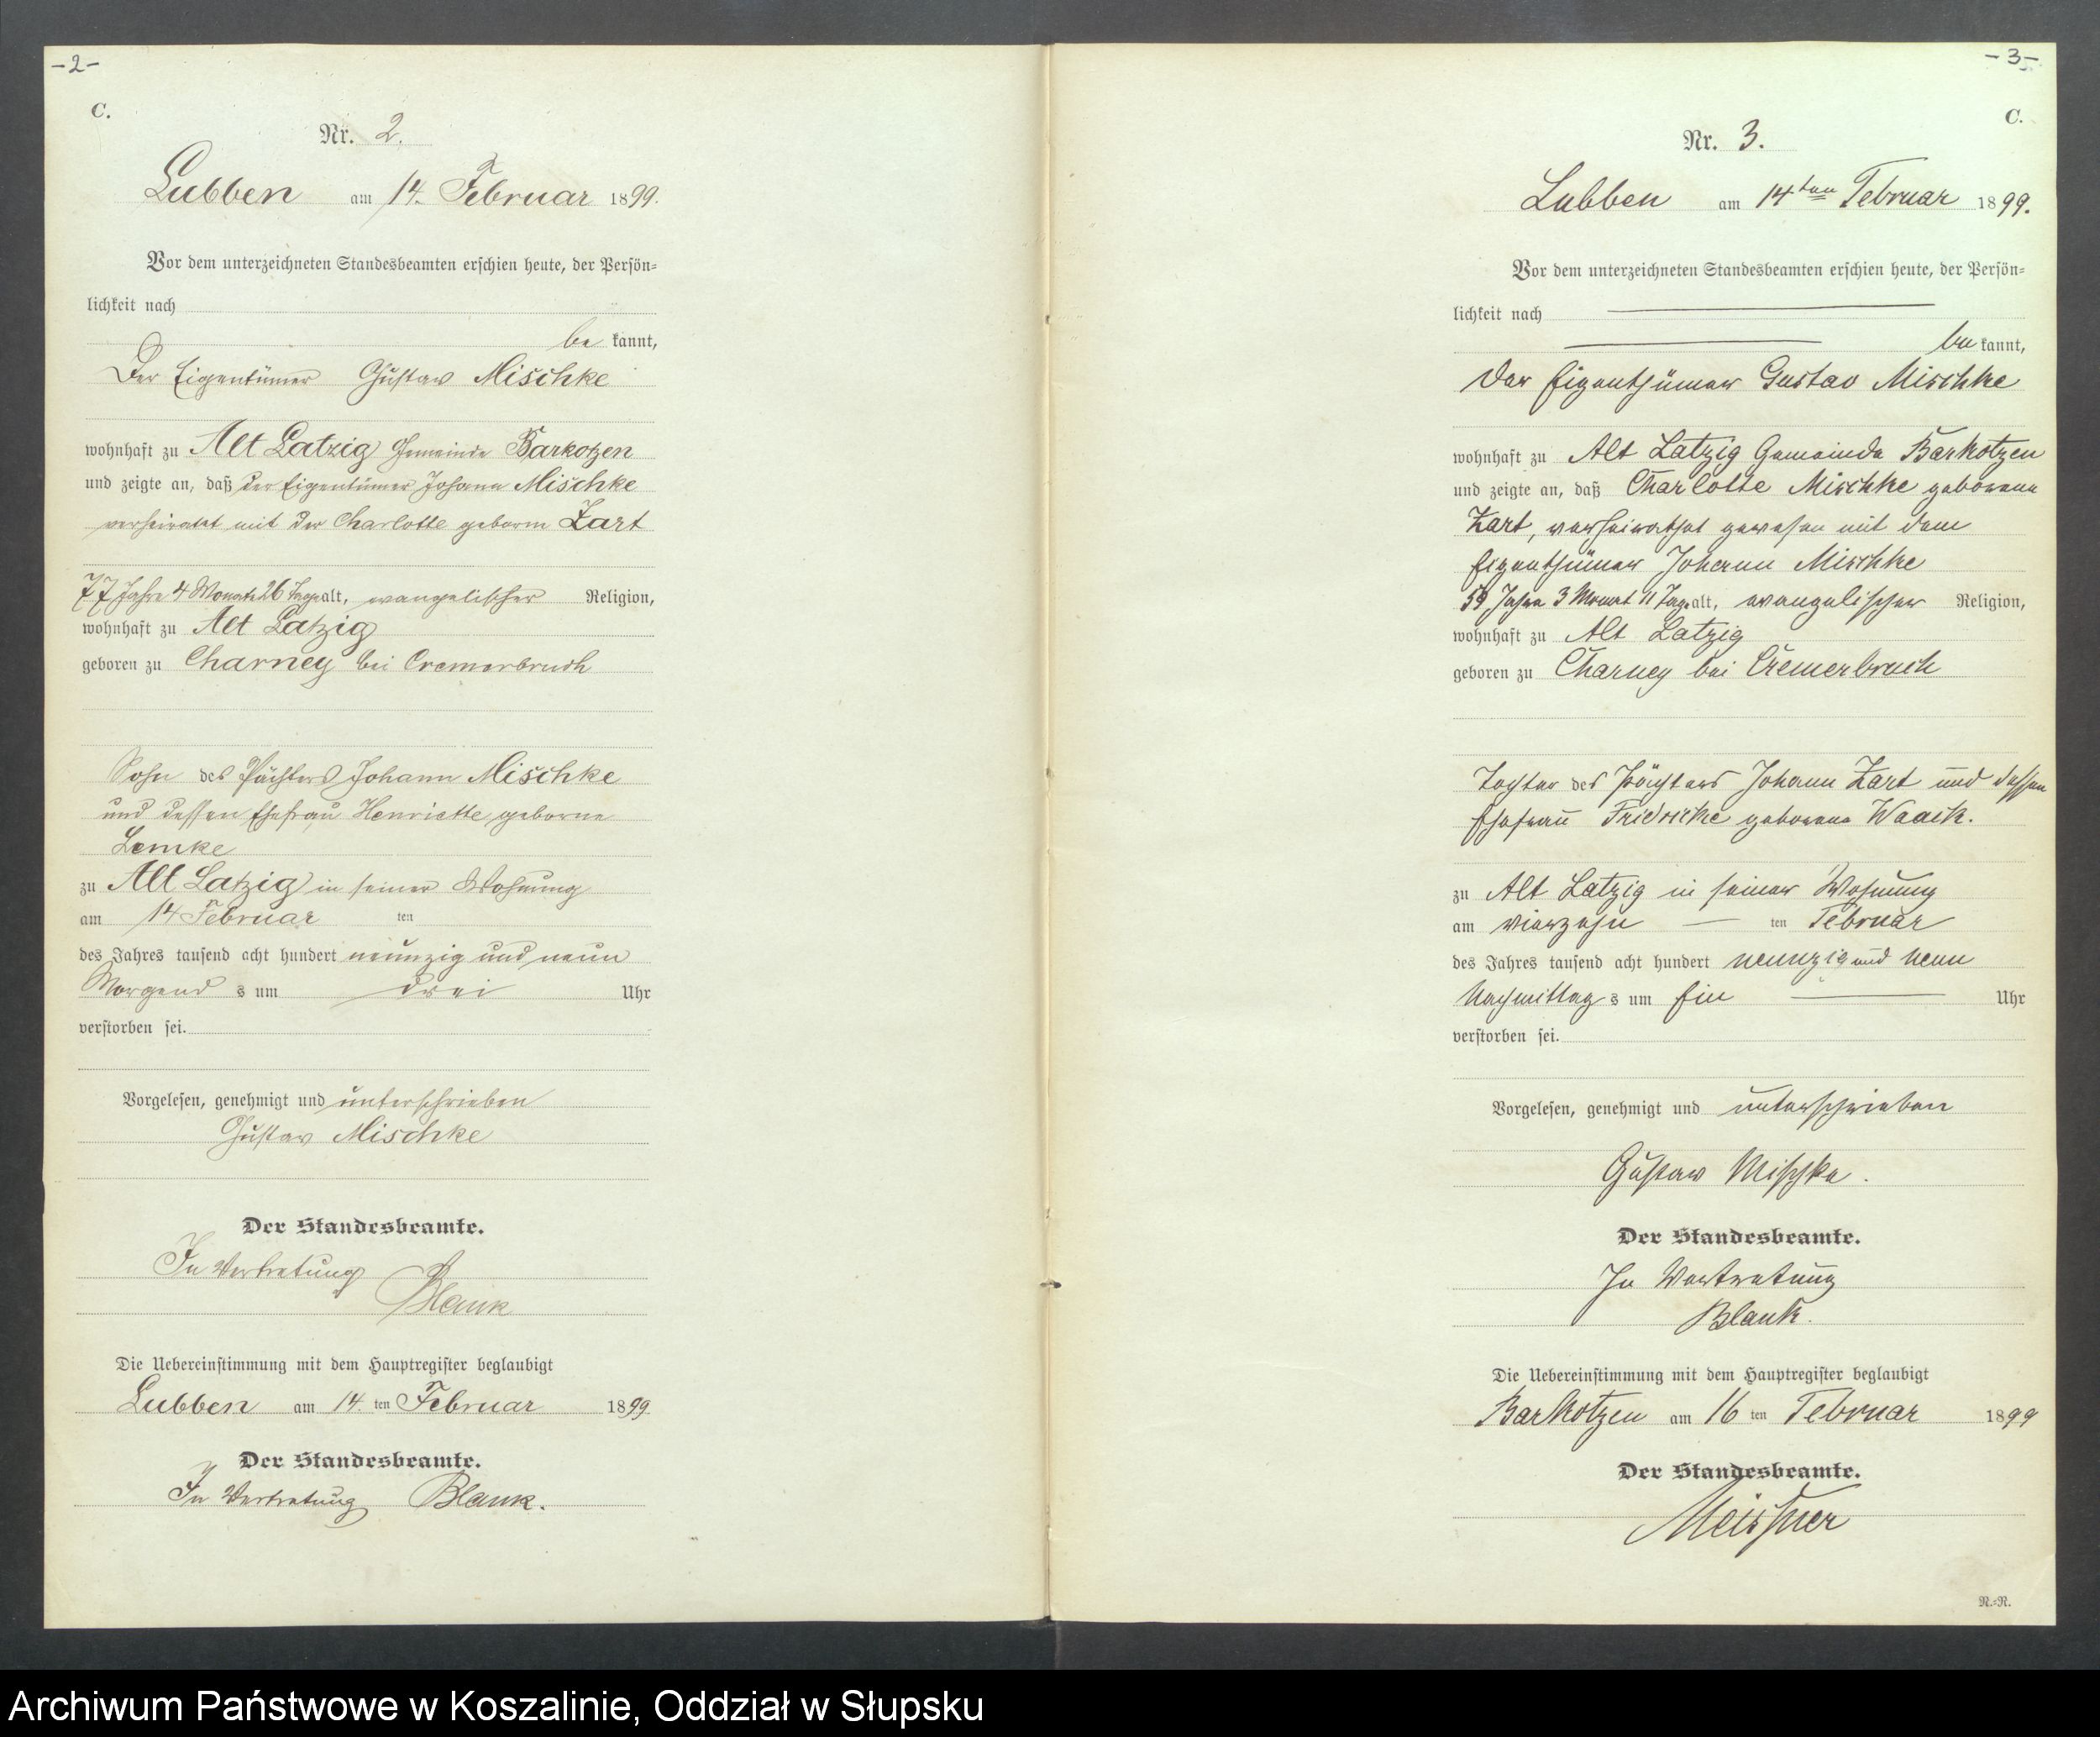 -2-
C.
Nr. 2.
Lubben am 14. Februar 1899.
Vor dem unterzeichneten Standesbeamten erschien heute, der Persön=
lichkeit nach
be kannt,
Der Eigentümer Gustav Mischke
wohnhaft zu Alt Latzig Gemeinde Barkotzen
und zeigte an, daß der Eigentümer Johann Mischke
verheiratet mit der Charlotte geborne Zart
77 Jahre 4 Monate 26 Tage alt, evangelischer Religion,
wohnhaft zu Alt Latzig
geboren zu Charney bei Cremerbruch
Sohn des Pächters Johann Mischke
und dessen Ehefrau Henriette geborne
Lemke
zu Alt Latzig in seiner Wohnung
am 14 Februar ten
des Jahres tausend acht hundert neunzig und neun
Morgend s um drei Uhr
verstorben sei.
Vorgelesen, genehmigt und unterschrieben
Gustav Mischke
Der Standesbeamte.
In Vertretung
Blank
Die Uebereinstimmung mit dem Hauptregister beglaubigt
Lubben am 14 ten Februar 1899
Der Standesbeamte.
In Vertretung Blank.
-3-
C.
Nr. 3.
Lubben am 14ten Februar 1899.
Vor dem unterzeichneten Standesbeamten erschien heute, der Persön=
lichkeit nach
be kannt,
der Eigenthümer Gustav Mischke
wohnhaft zu Alt Latzig Gemeinde Barkotzen
und zeigte an, daß Charlotte Mischke geborene
Zart, verheirathet gewesen mit dem
Eigenthümer Johann Mischke
59 Jahre 3 Monat 11 Tage alt, evangelischer Religion,
wohnhaft zu Alt Latzig
geboren zu Charney bei Cremerbruch
Tochter des Pächters Johann Zart und dessen
Ehefrau Fridricke geborene Waack.
zu Alt Latzig in seiner Wohnung
am vierzehn ten Februar
des Jahres tausend acht hundert neunzig und neun
Nachmittag s um Ein Uhr
verstorben sei.
Vorgelesen, genehmigt und unterschrieben
Gustav Mischke.
Der Standesbeamte.
In Vertretung
Blank.
Die Uebereinstimmung mit dem Hauptregister beglaubigt
Barkotzen am 16 ten Februar 1899
Der Standesbeamte.
Meissner
N.=N.
Archiwum Państwowe w Koszalinie, Oddział w Słupsku